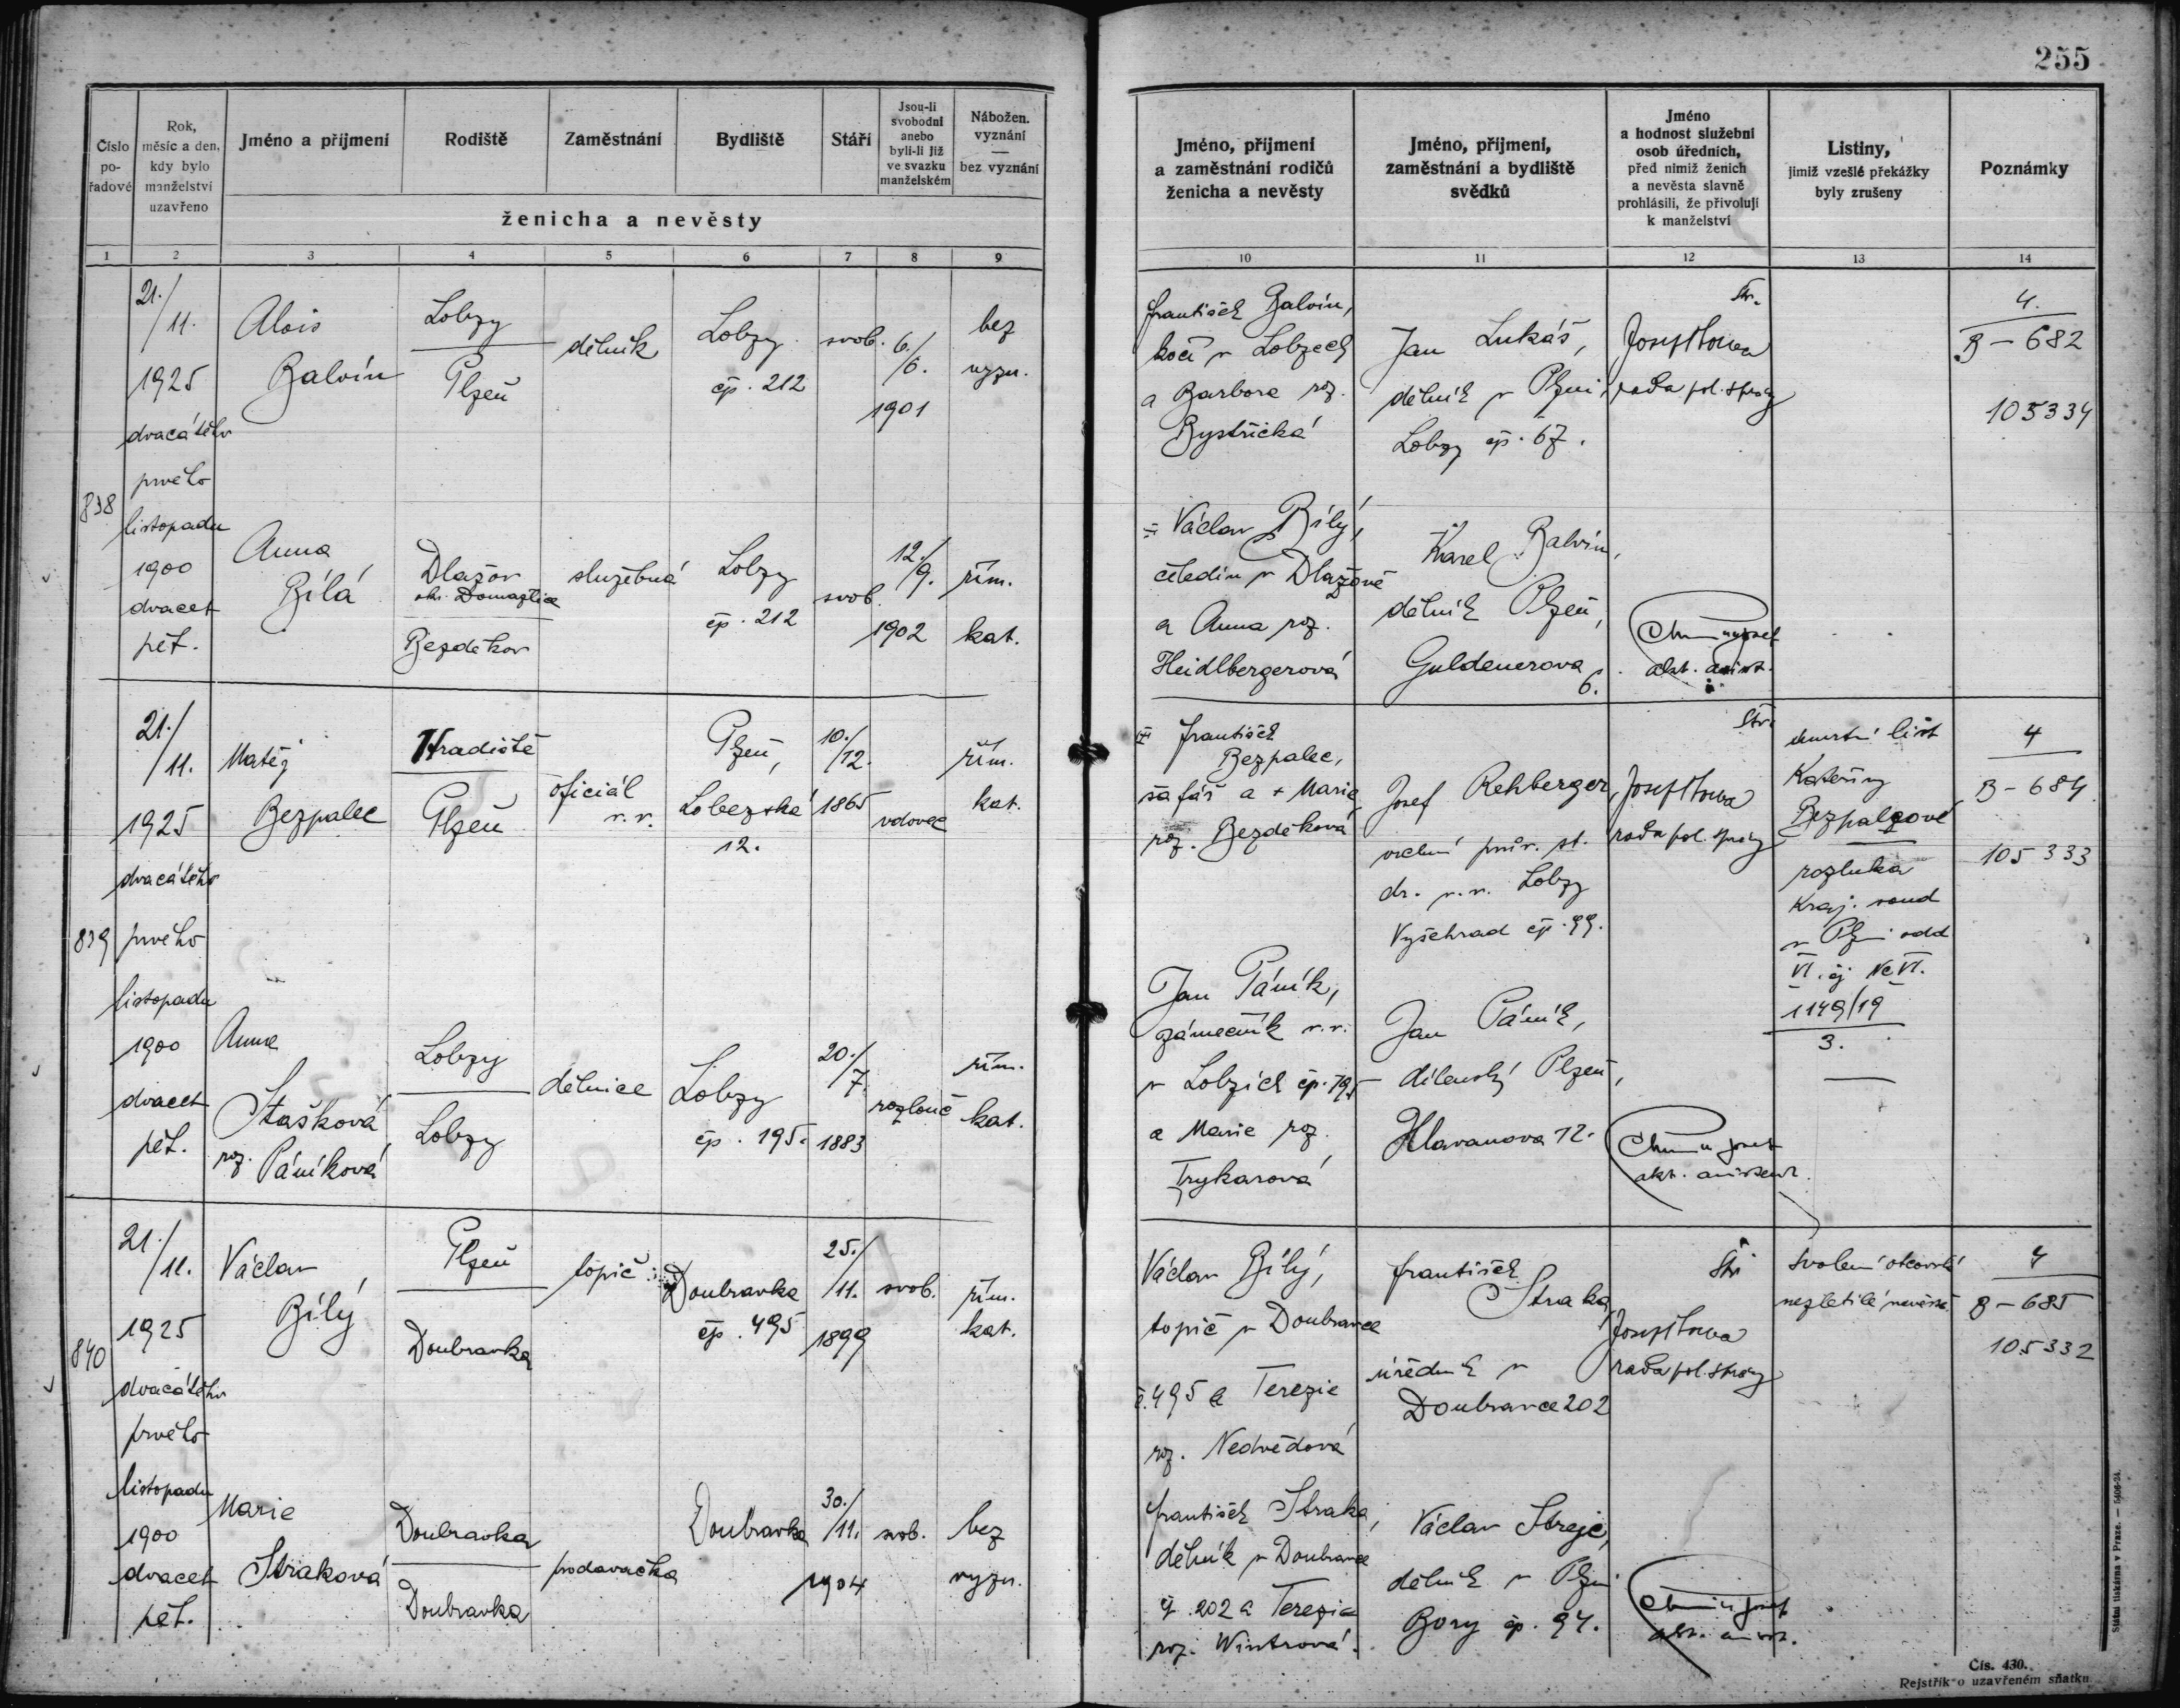 255
Číslo
po-
řadové
Rok,
měsíc a den,
kdy bylo
manželství
uzavřeno
Jméno a příjmení
Rodiště
Zaměstnání
Bydliště
Stáří
Jsou-li
svobodni
anebo
byli-li již
ve svazku
manželském
Nábožen.
vyznání
—
bez vyznání
ženicha a nevěsty
Jméno, příjmení
a zaměstnání rodičů
ženicha a nevěsty
Jméno, příjmení,
zaměstnání a bydliště
svědků
Jméno
a hodnost služební
osob úředních,
před nimiž ženich
a nevěsta slavně
prohlásili, že přivolují
k manželství
Listiny,
jimiž vzešlé překážky
byly zrušeny
Poznámky
1 2 3 4 5 6 7 8 9 10 11 12 13 14
838
21./
/11.
1925
dvacátého
prvého
listopadu
1900
dvacet
pět.
Alois
Balvín
Lobzy
Plzeň
dělník
Lobzy
čp. 212
svob.
6./
/6.
1901
bez
vyzn.
František Balvín,
kočí v Lobzech
a Barbora roz.
Bystřická
Jan Lukáš,
dělník v Plzni,
Lobzy čp. 67.
rada pol. správy
4.
B - 682
105334
Anna
Bílá
Dlažov
okr. Domažlice
Bezděkov
služebná
Lobzy
čp. 212
svob.
12./
/9.
1902
řím.
kat.
Václav Bílý,
čeledín v Dlažově
a Anna roz.
Heidlbergerová
Karel Balvín,
dělník Plzeň,
Guldenerova
6.
839
21./
/11.
1925
dvacátého
prvého
listopadu
1900
dvacet
pět.
Matěj
Bezpalec
Hradiště
Plzeň
oficiál
v. v.
Plzeň,
Lobezská
12.
10./
/12.
1865
vdovec
řím.
kat.
František
Bezpalec,
šafář a + Marie
roz. Bezděková
Josef Rehberger,
vrchní prův. st.
dr. v. v. Lobzy
Vyšehrad čp. 99.
rada pol. správy
úmrtní list
Kateřiny
Bezpalcové
rozluka
Kraj. soud
v Plzni odd
VI. čj. Nc VI.
1149/19
3.
4
B - 684
105 333
Anna
Stašková
roz. Páníková
Lobzy
Lobzy
dělnice
Lobzy
čp. 195.
20./
/7.
1883
rozlouč
řím.
kat.
Jan Páník,
zámečník v. v.
v Lobzích čp. 195
a Marie roz.
Trykarová
Jan Páník,
dílenský Plzeň,
Hlavanova 12.
840
21./
/11.
1925
dvacátého
prvého
listopadu
1900
dvacet
pět.
Václav
Bílý
Plzeň
Doubravka
topič
Doubravka
čp. 495
25./
/11.
1899
svob.
řím.
kat.
Václav Bílý,
topič v Doubravce
č. 495 a Terezie
roz. Nedvědová
František
Straka,
úředník v
Doubravce 202
rada pol. správy
svolení otcovské
nezletilé nevěstě
4
B - 685
105332
Marie
Straková
Doubravka
Doubravka
prodavačka
Doubravka
30./
/11.
1904
svob.
bez
vyzn.
František Straka,
dělník v Doubravce
čp. 202 a Terezie
roz. Wintrová.
Václav Strejc,
dělník v Plzni
Bory čp. 94.
Státní tiskárna v Praze. — 5406-24.
Čís. 430.
Rejstřík o uzavřeném sňatku.